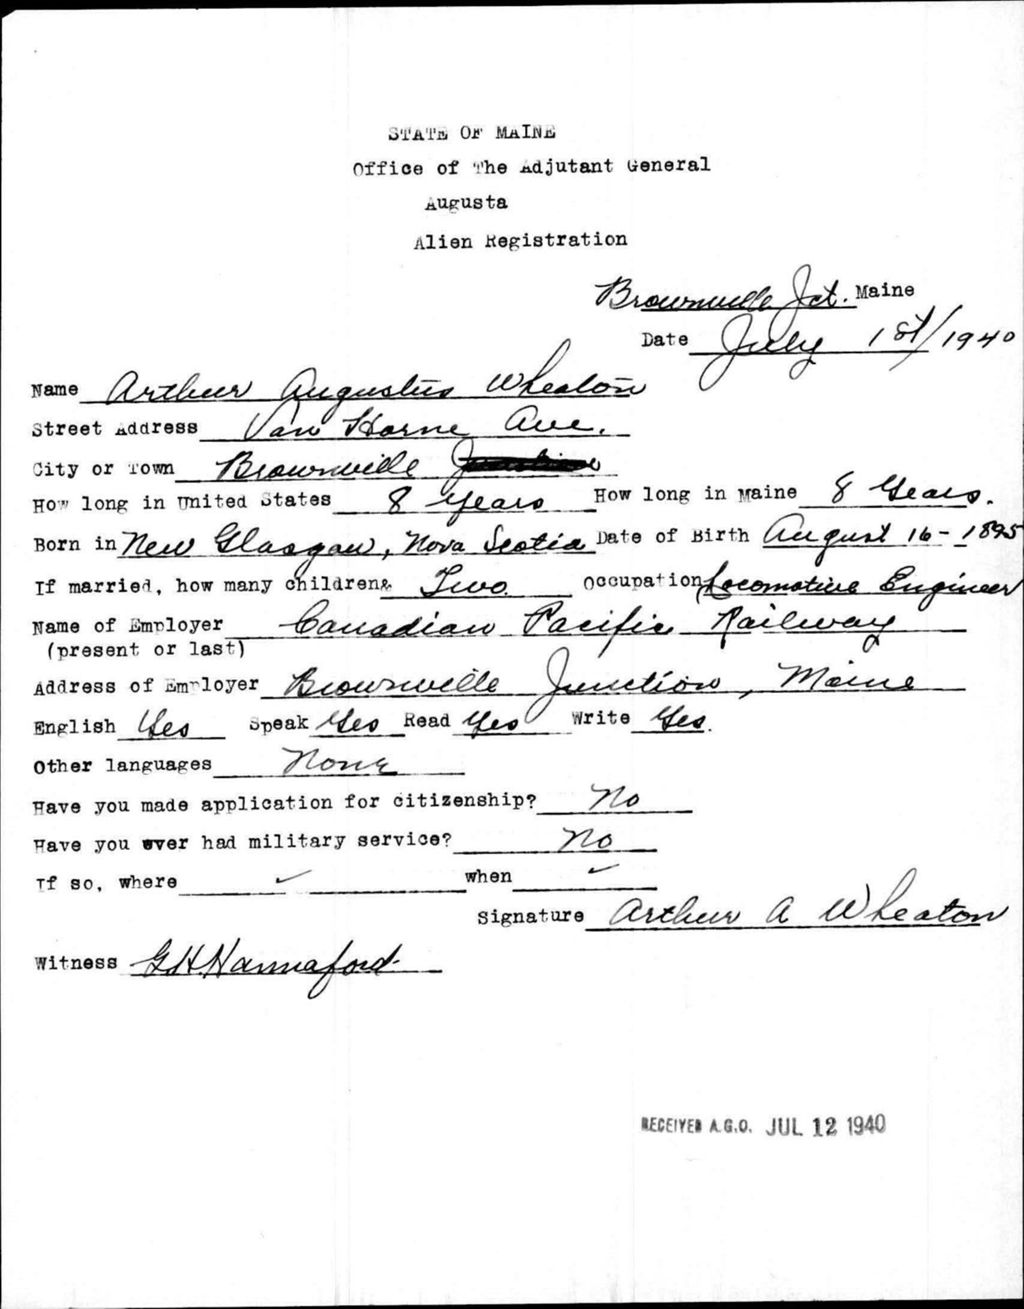 STATE OF MAINE
Office of The Adjutant General
Augusta
Alien Registration
Brownville Jct. Maine
Date July 1st/1940
Name Arthur Augustus Wheaton
Street Address Van Horne Ave.
City or Town Brownville
How long in United States 8 Years How long in Maine 8 Years.
Born in New Glasgow, Nova Scotia Date of Birth August 16-1895
If married, how many children Two. Occupation Locomotive Engineer
Name of Employer Canadian Pacific Railway
(present or last)
Address of Employer Brownville Junction, Maine
English Yes Speak Yes Read Yes Write Yes.
Other languages None
Have you made application for citizenship? No
Have you ever had military service? No
If so, where ✓ when ✓
Signature Arthur A Wheaton
Witness G H Hannaford
RECEIVED A.G.O. JUL 12 1940